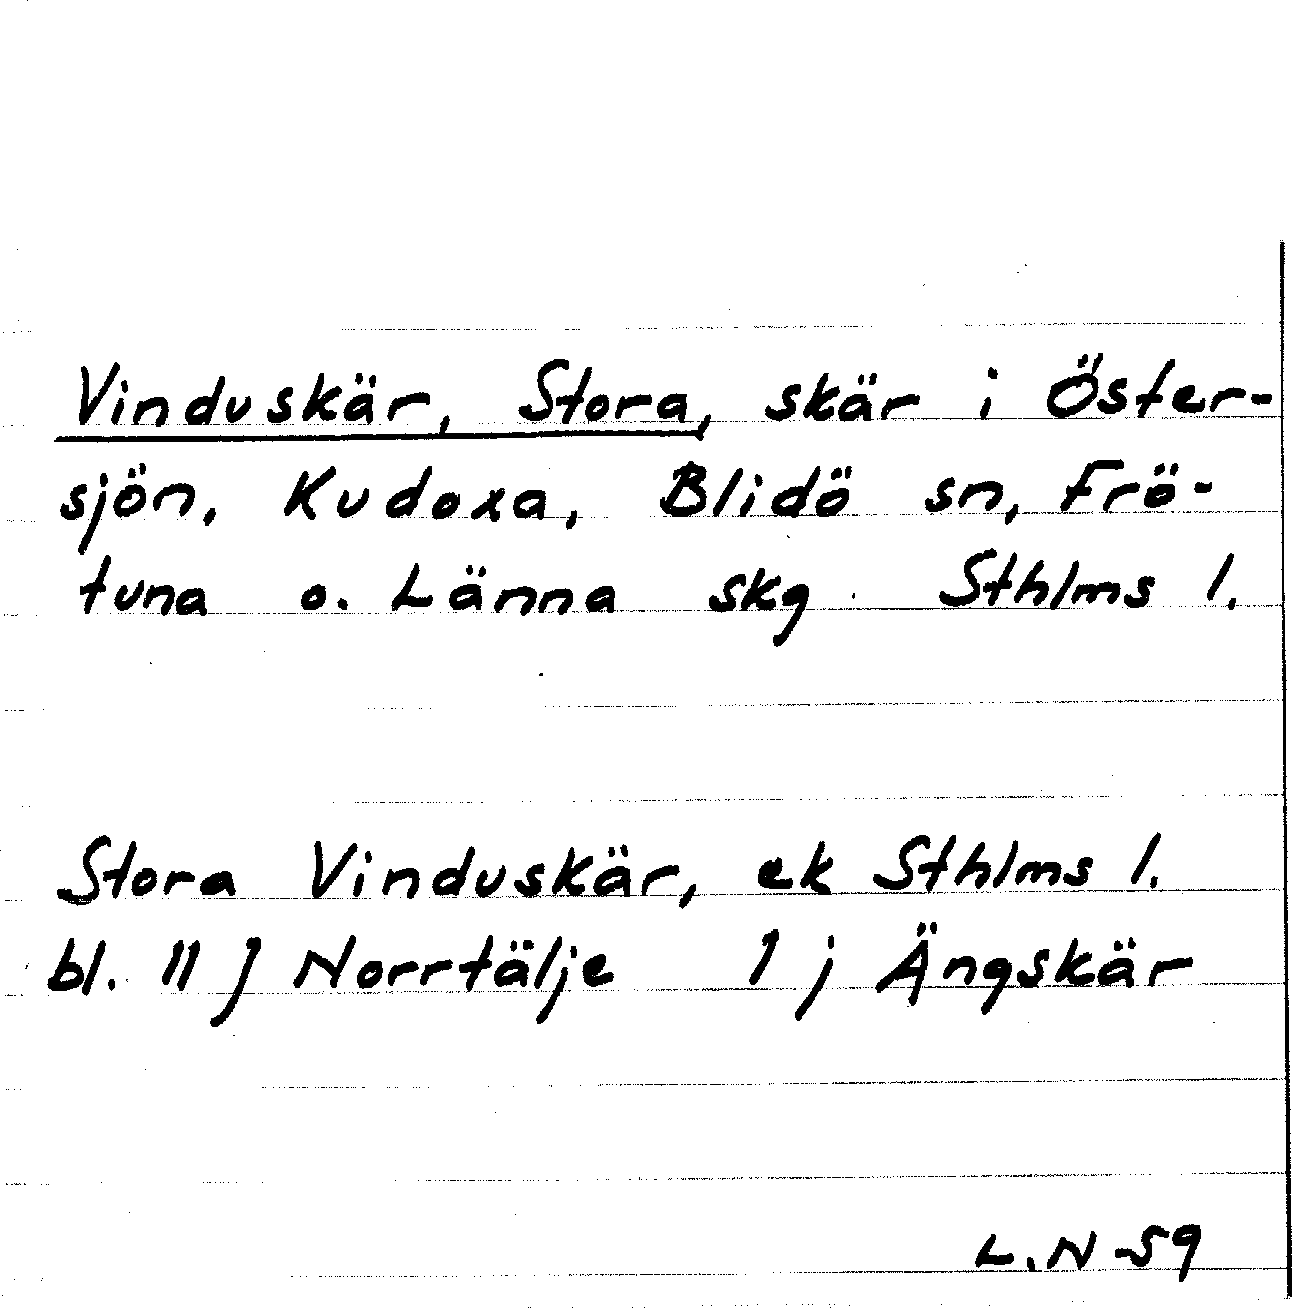 Vinduskär, Stora, skär i Öster-
sjön, Kudoxa, Blidö sn, Frö-
tuna o. Länna skg Sthlms l.
Stora Vinduskär, ek Sthlms l.
bl. 11 J Norrtälje 1 j Ängskär
L.N -59